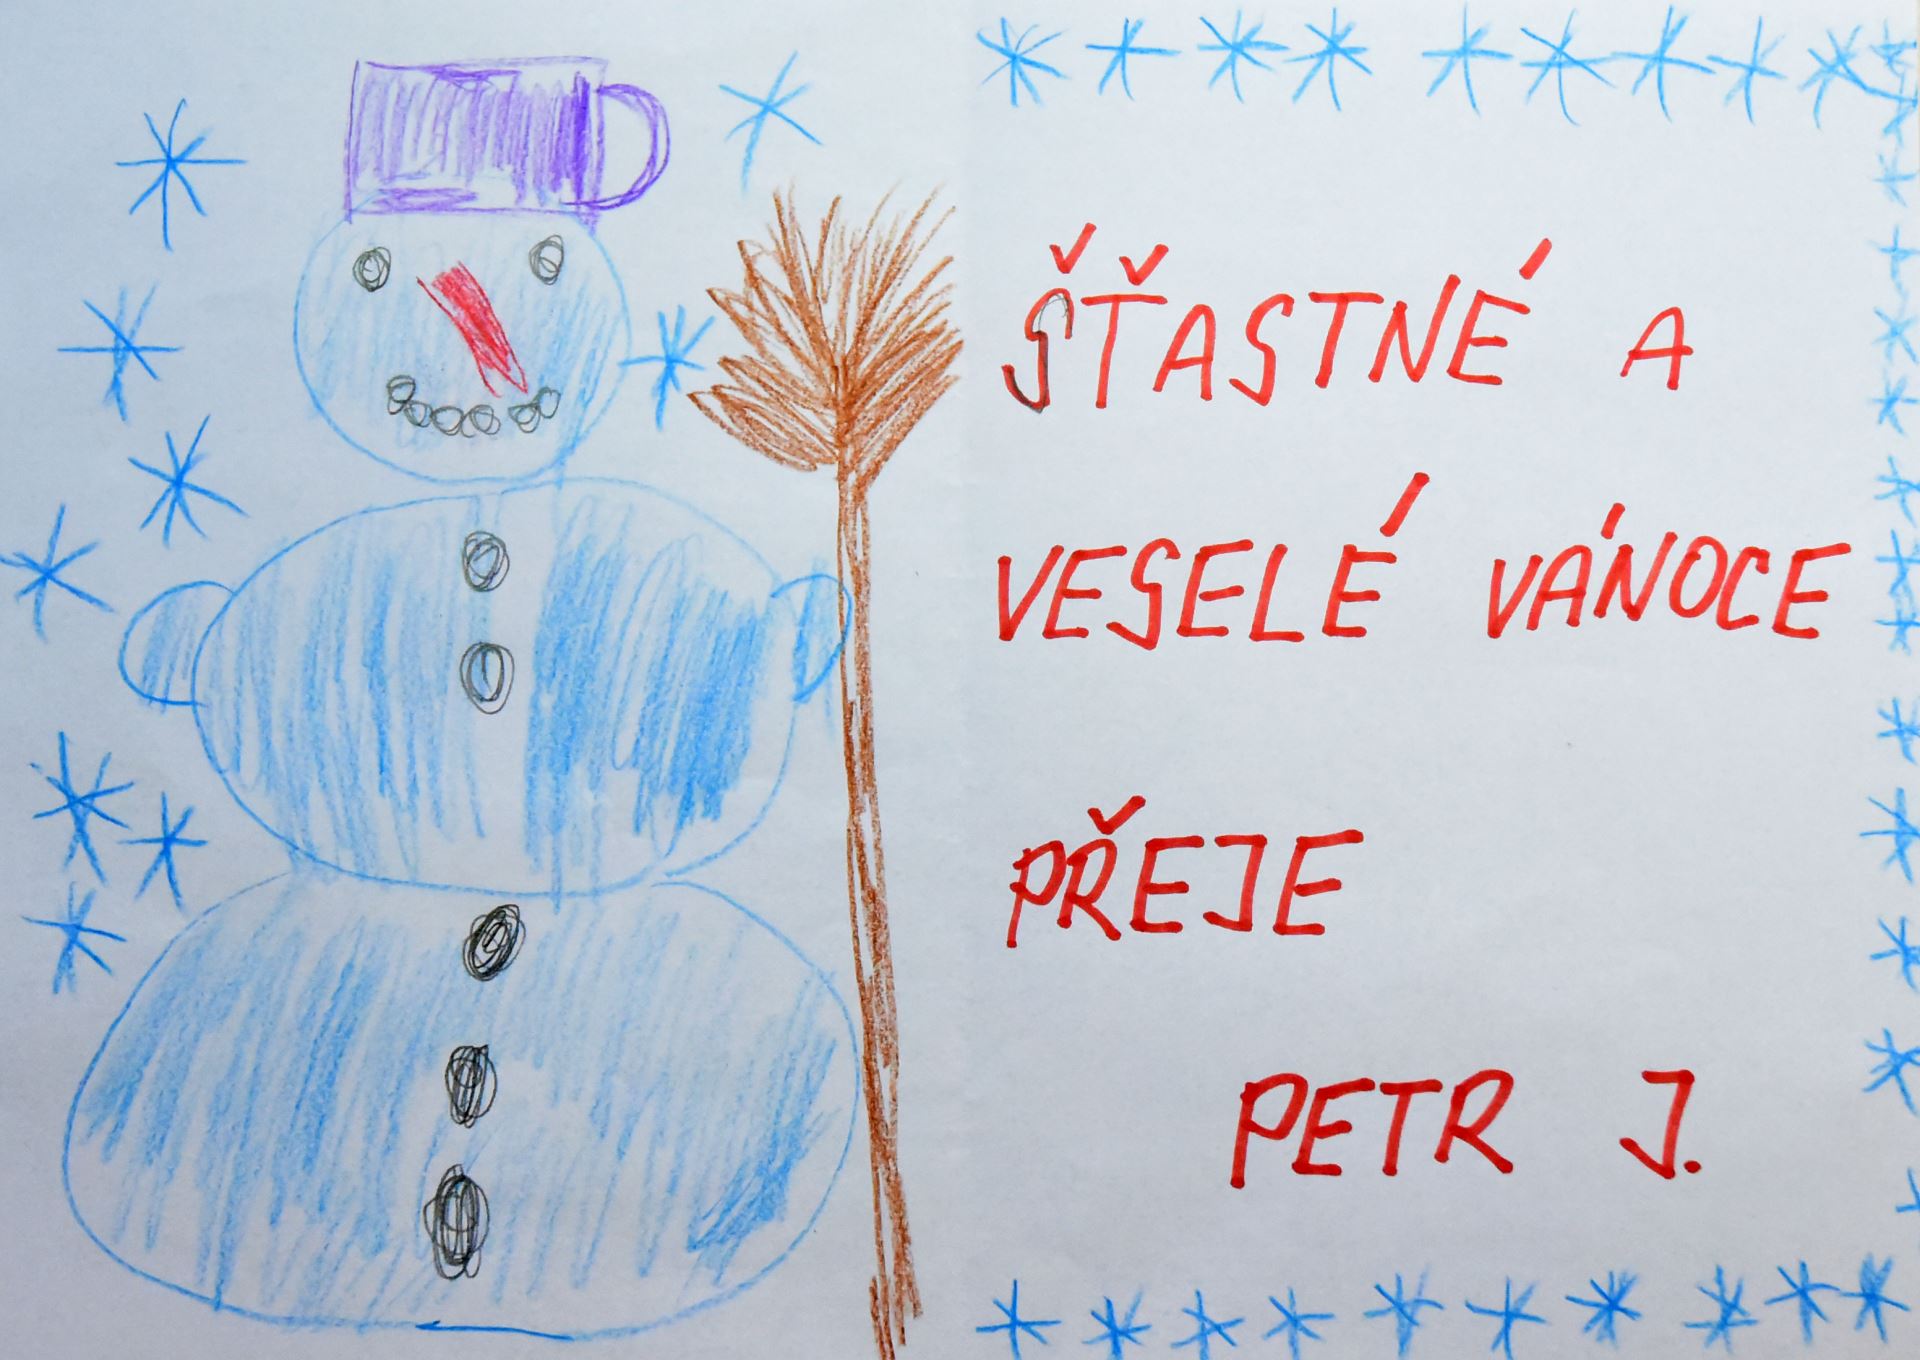 ŠŤASTNÉ A
VESELÉ VÁNOCE
PŘEJE
PETR J.